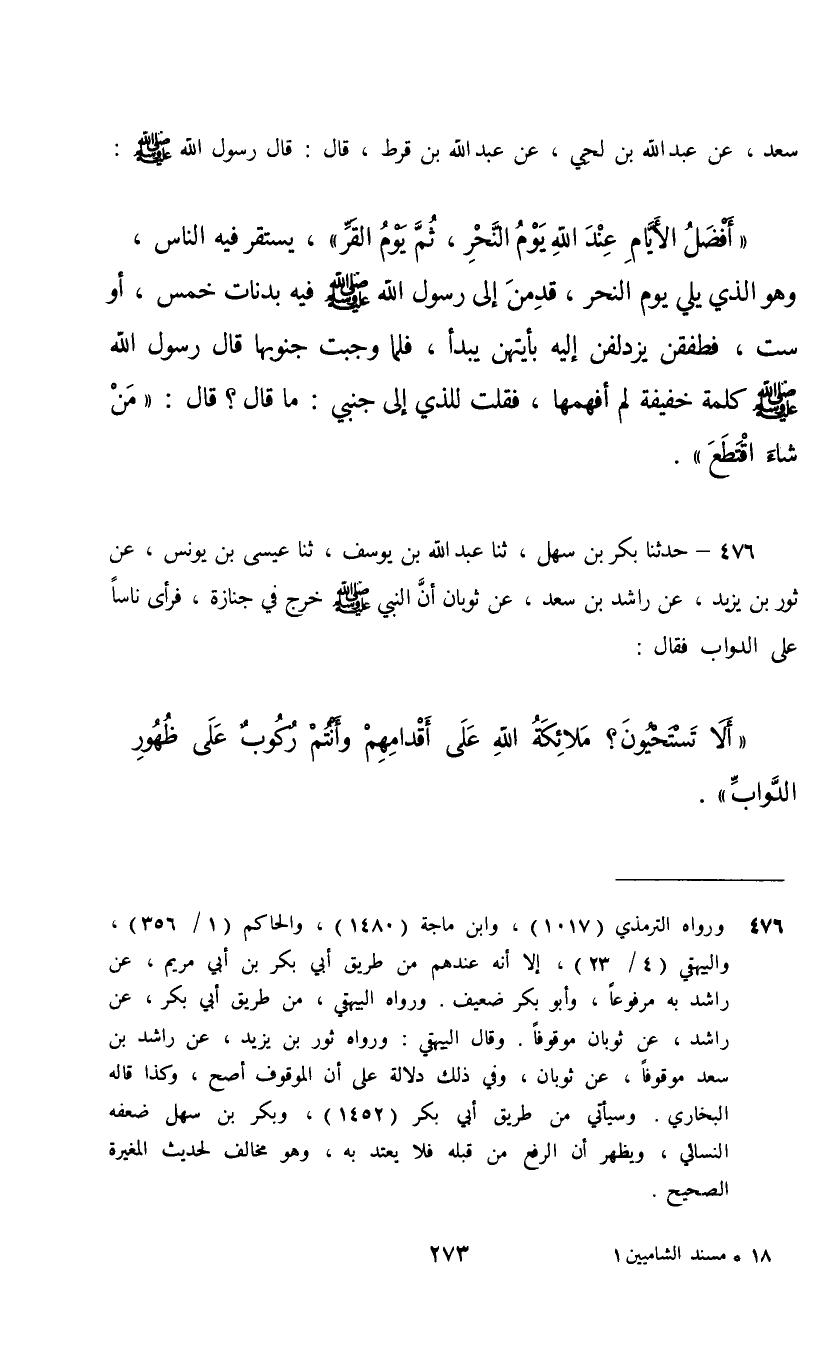 سعد ، عن عبد الله بن لحي ، عن عبد الله بن قرط ، قال : قال رسول الله ﷺ :
« أَفْضَلُ الأَيَّامِ عِنْدَ اللهِ يَوْمُ النَّحْرِ ، ثُمَّ يَوْمُ القَرِّ » ، يستقر فيه الناس ،
وهو الذي يلي يوم النحر ، قدِمنَ إلى رسول الله ﷺ فيه بدنات خمس ، أو
ست ، فطفقن يزدلفن إليه بأيتهن يبدأ ، فلما وجبت جنوبها قال رسول الله
ﷺ كلمة خفيفة لم أفهمها ، فقلت للذي إلى جنبي : ما قال ؟ قال : « مَنْ
شاءَ اقْتَطَعَ » .
٤٧٦ – حدثنا بكر بن سهل ، ثنا عبد الله بن يوسف ، ثنا عيسى بن يونس ، عن
ثور بن يزيد ، عن راشد بن سعد ، عن ثوبان أنَّ النبي ﷺ خرج في جنازة ، فرأى ناساً
على الدواب فقال :
« أَلَا تَسْتَحْيُونَ؟ مَلائِكَةُ اللهِ عَلَى أَقْدامِهِمْ وأَنْتُمْ رُكُوبٌ عَلَى ظُهُورِ
الدَّوابِّ » .
٤٧٦ ورواه الترمذي (١٠١٧) ، وابن ماجة (١٤٨٠) ، والحاكم (١/ ٣٥٦) ،
والبيهقي (٤/ ٢٣) ، إلا أنه عندهم من طريق أبي بكر بن أبي مريم ، عن
راشد به مرفوعاً ، وأبو بكر ضعيف . ورواه البيهقي ، من طريق أبي بكر ، عن
راشد ، عن ثوبان موقوفاً . وقال البيهقي : ورواه ثور بن يزيد ، عن راشد بن
سعد موقوفاً ، عن ثوبان ، وفي ذلك دلالة على أن الموقوف أصح ، وكذا قاله
البخاري . وسيأتي من طريق أبي بكر (١٤٥٢) ، وبكر بن سهل ضعفه
النسائي ، ويظهر أن الرفع من قبله فلا يعتد به ، وهو مخالف لحديث المغيرة
الصحيح .
١٨ * مسند الشاميين ١
٢٧٣